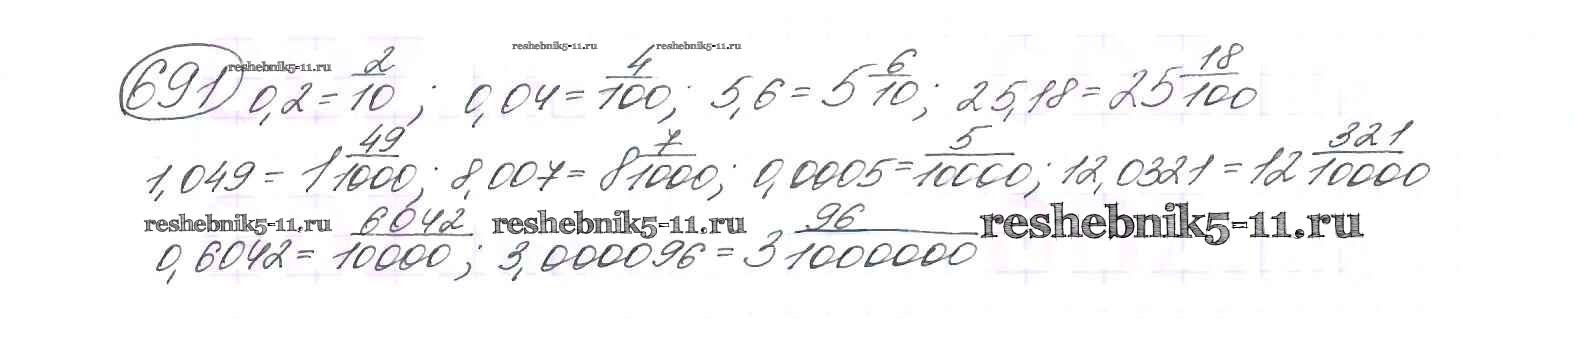 reshebnik5-11.ru reshebnik5-11.ru reshebnik5-11.ru
691 0,2 = 2/10 ; 0,04 = 4/100 ; 5,6 = 5 6/10 ; 25,18 = 25 18/100
1,049 = 1 49/1000 ; 8,007 = 8 7/1000 ; 0,0005 = 5/10000 ; 12,0321 = 12 321/10000
reshebnik5-11.ru reshebnik5-11.ru reshebnik5-11.ru
0,6042 = 6042/10000 ; 3,000096 = 3 96/1000000